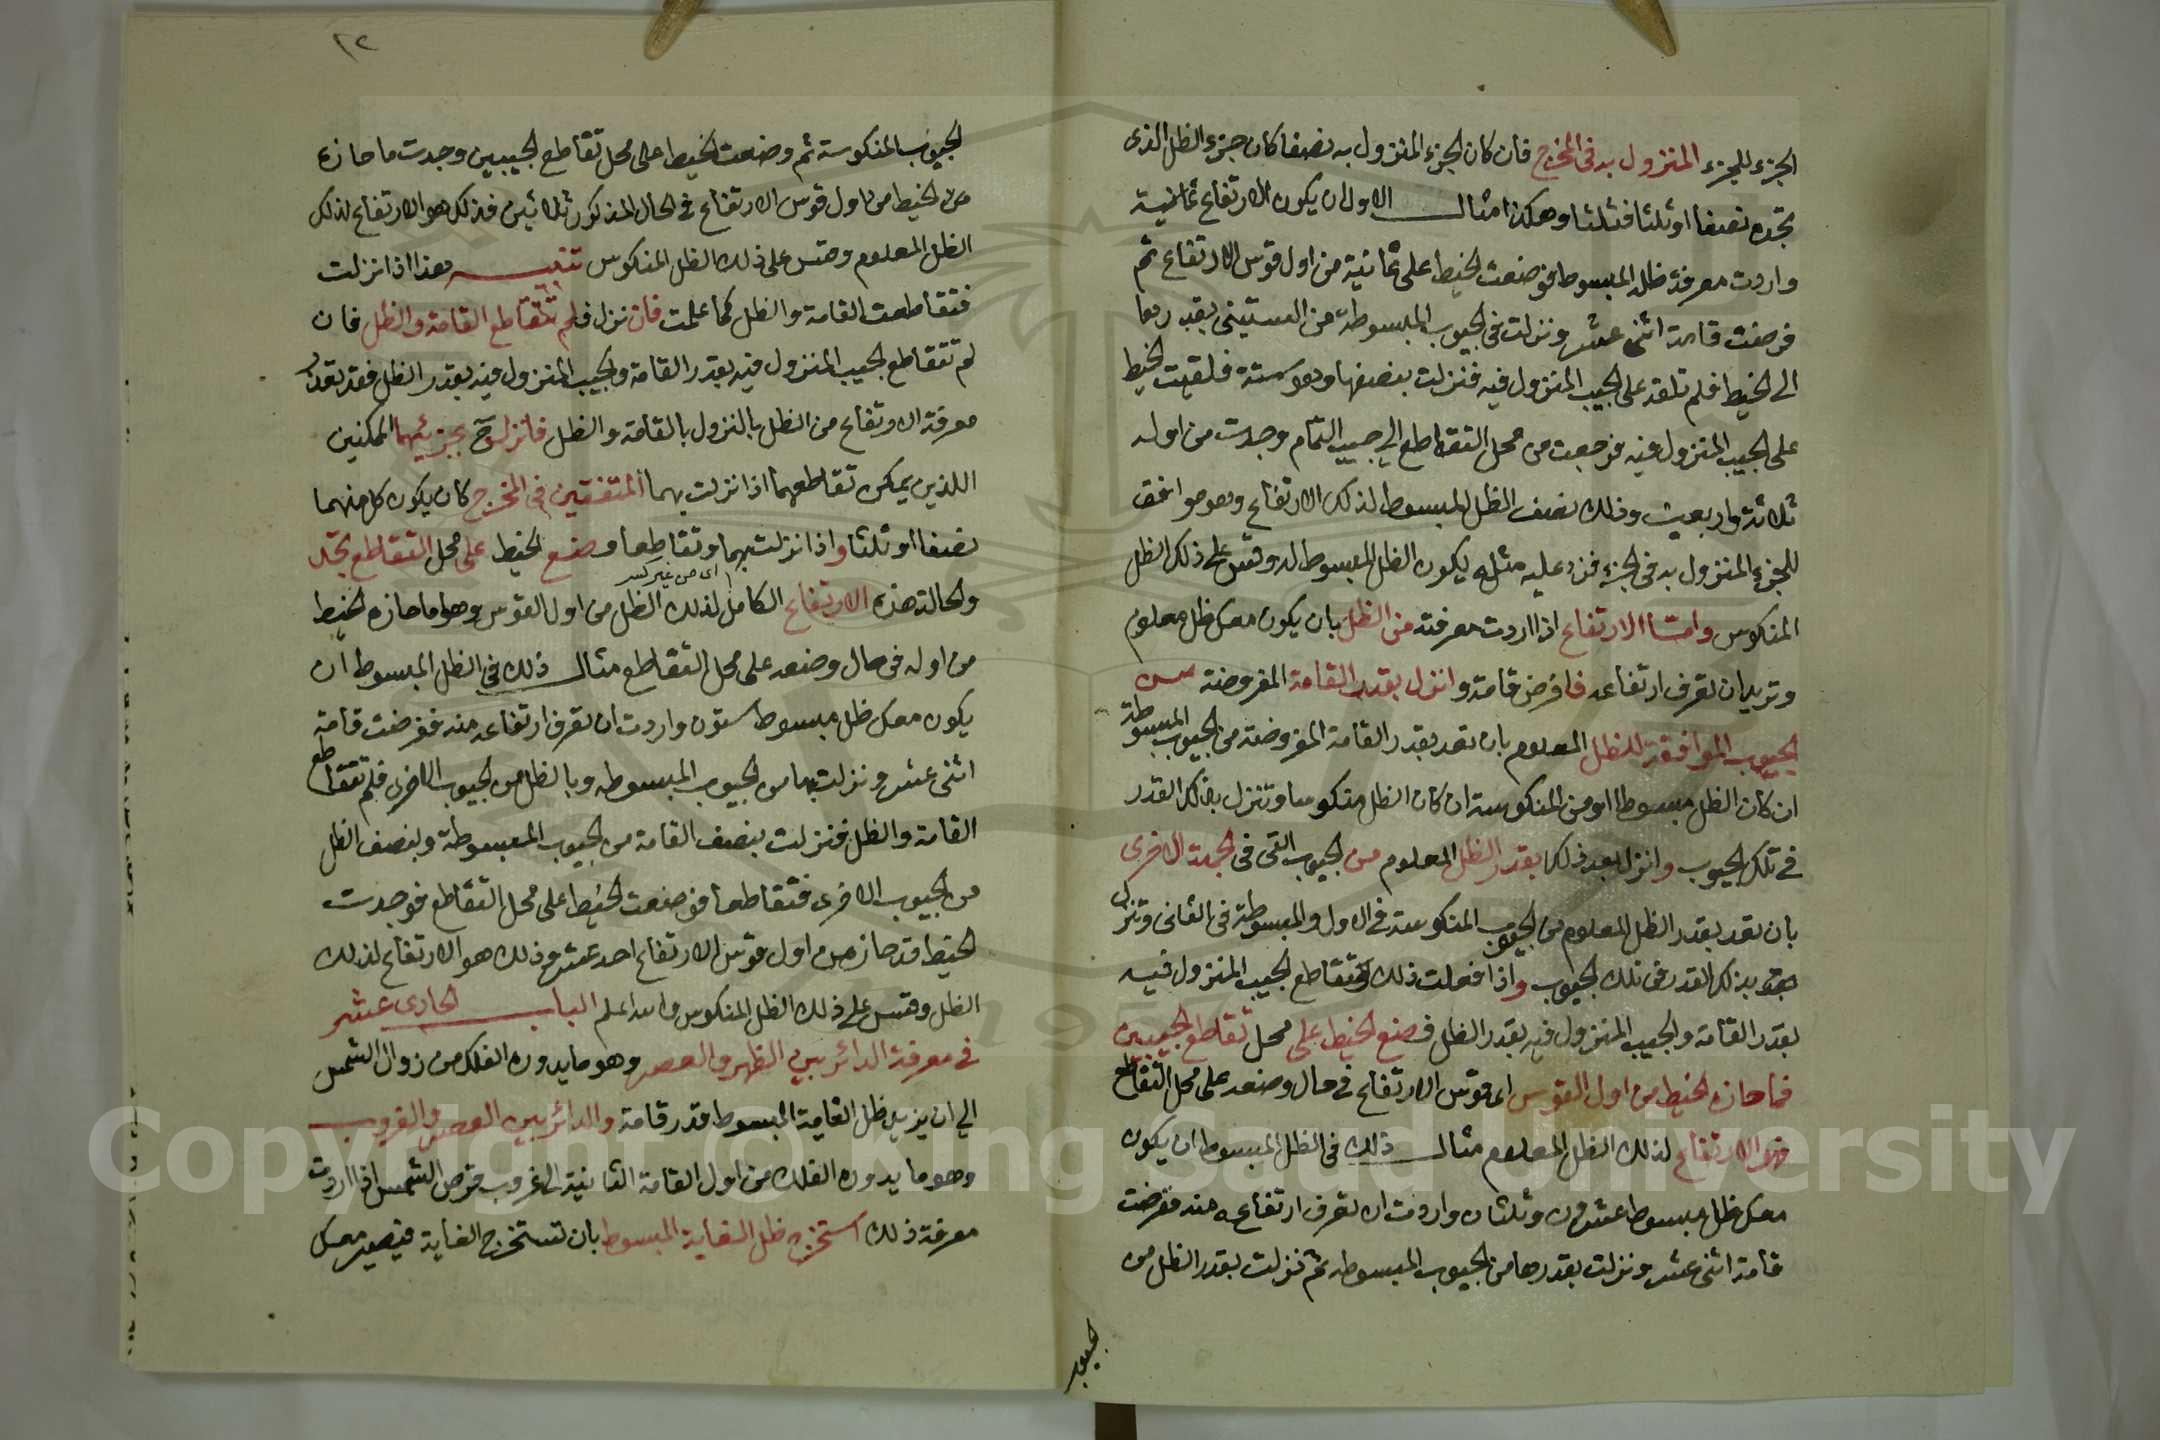 الجزء للجزء المنزول به في المخرج فان كان الجزء المنزول به نصفا كان جزء الظل الذى
تجده نصفا او ثلثا فثلثا وهكذا مثال الاول ان يكون الارتفاع ثمانية
واردت معرفة ظله المبسوط فوضعت الخيط على ثمانية من اول قوس الارتفاع ثم
فرضت قامة اثنى عشر ونزلت في الجيوب المبسوطة من الستينى بقدرها
الى الخيط فلم تلقه على الجيب المنزول فيه فنزلت بنصفها وهو ستة فلقيت الخيط
على الجيب المنزول فيه فرجعت من محل التقاطع الى جيب التمام وجدت من اوله
ثلاثة واربعين وذلك نصف الظل المبسوط لذلك الارتفاع وهو موافق
للجزء المنزول به في الجزء فزد عليه مثله ليكون الظل المبسوط له وقس على ذلك الظل
المنكوس واما الارتفاع اذا اردت معرفته من الظل بان يكون معك ظل معلوم
وتريد ان تعرف ارتفاعه فافرض قامة وانزل بقدر القامة المفروضة من
الجيوب الموافقة للظل المعلوم بان تعد بقدر القامة المفروضة من الجيوب المبسوطة
ان كان الظل مبسوطا او من المنكوسة ان كان الظل منكوسا وتنزل بذلك القدر
في تلك الجيوب وانزل بعد ذلك بقدر الظل المعلوم من الجيوب التى فى الجهة الاخرى
بان تعد بقدر الظل المعلوم من الجيوب المنكوسة في الاول والمبسوطة فى الثانى وتنزل
بذلك القدر فى تلك الجيوب واذا فعلت ذلك وتقاطع الجيب المنزول فيه
بقدر القامة والجيب المنزول فيه بقدر الظل فضع الخيط على محل تقاطع الجيبين
فما حازه الخيط من اول القوس اى قوس الارتفاع في حال وضعه على محل التقاطع
فهو الارتفاع لذلك الظل المعلوم مثال ذلك فى الظل المبسوط ان يكون
معك ظل مبسوط عشرون وثلثان واردت ان تعرف ارتفاعه منه ففرضت
قامة اثنى عشر ونزلت بقدرها من الجيوب المبسوطه ثم نزلت بقدر الظل من
الجيوب
١٢
الجيوب المنكوسة ثم وضعت الخيط على محل تقاطع الجيبين وجدت ما حازه
من الخيط من اول قوس الارتفاع في الحال المذكور ثلاثين فذلك هو الارتفاع لذلك
الظل المعلوم وقس على ذلك الظل المنكوس تنبيه هذا اذا نزلت
فتقاطعت القامة والظل كما علمت فان نزل فلم تتقاطع القامة والظل فان
لم تتقاطع الجيب المنزول فيه بقدر القامة والجيب المنزول فيه بقدر الظل فقد تعذر
معرفة الارتفاع من الظل بالنزول بالقامة والظل فانزل ح بجزئيهما الممكنين
اللذين يمكن تقاطعهما اذا نزلت بهما المتفقين في المخرج كان يكون كل منهما
نصفا او ثلثا واذا نزلت بهما وتقاطعا وضع الخيط على محل التقاطع تجد
اى من غير كسر
والحالة هذه الارتفاع الكامل لذلك الظل من اول القوس وهو ما حازه الخيط
من اوله فى حال وضعه على محل التقاطع مثال ذلك فى الظل المبسوط ان
يكون معك ظل مبسوط ستون واردت ان تعرف ارتفاعه منه ففرضت قامة
اثنى عشر ونزلت بها من الجيوب المبسوطه وبالظل من الجيوب الاخرى فلم تتقاطع
القامة والظل فنزلت بنصف القامة من الجيوب المبسوطة وبنصف الظل
من الجيوب الاخرى فتقاطعا فوضعت الخيط على محل التقاطع فوجدت
الخيط قد حاز من اول قوس الارتفاع احد عشر وذلك هو الارتفاع لذلك
الظل وقس على ذلك الظل المنكوس والله اعلم الباب الحادى عشر
في معرفة الدائر بين الظهر والعصر وهو ما يدوره الفلك من زوال الشمس
الى ان يزيد ظل الغاية المبسوط قدر قامة والدائر بين العصر والغروب
وهو ما يدوره الفلك من اول القامة الثانية الى غروب قرص الشمس اذا اردت
معرفة ذلك استخرج ظل الغاية المبسوط بان تستخرج الغاية فيصير معك
Copyright © King Saud University
1957